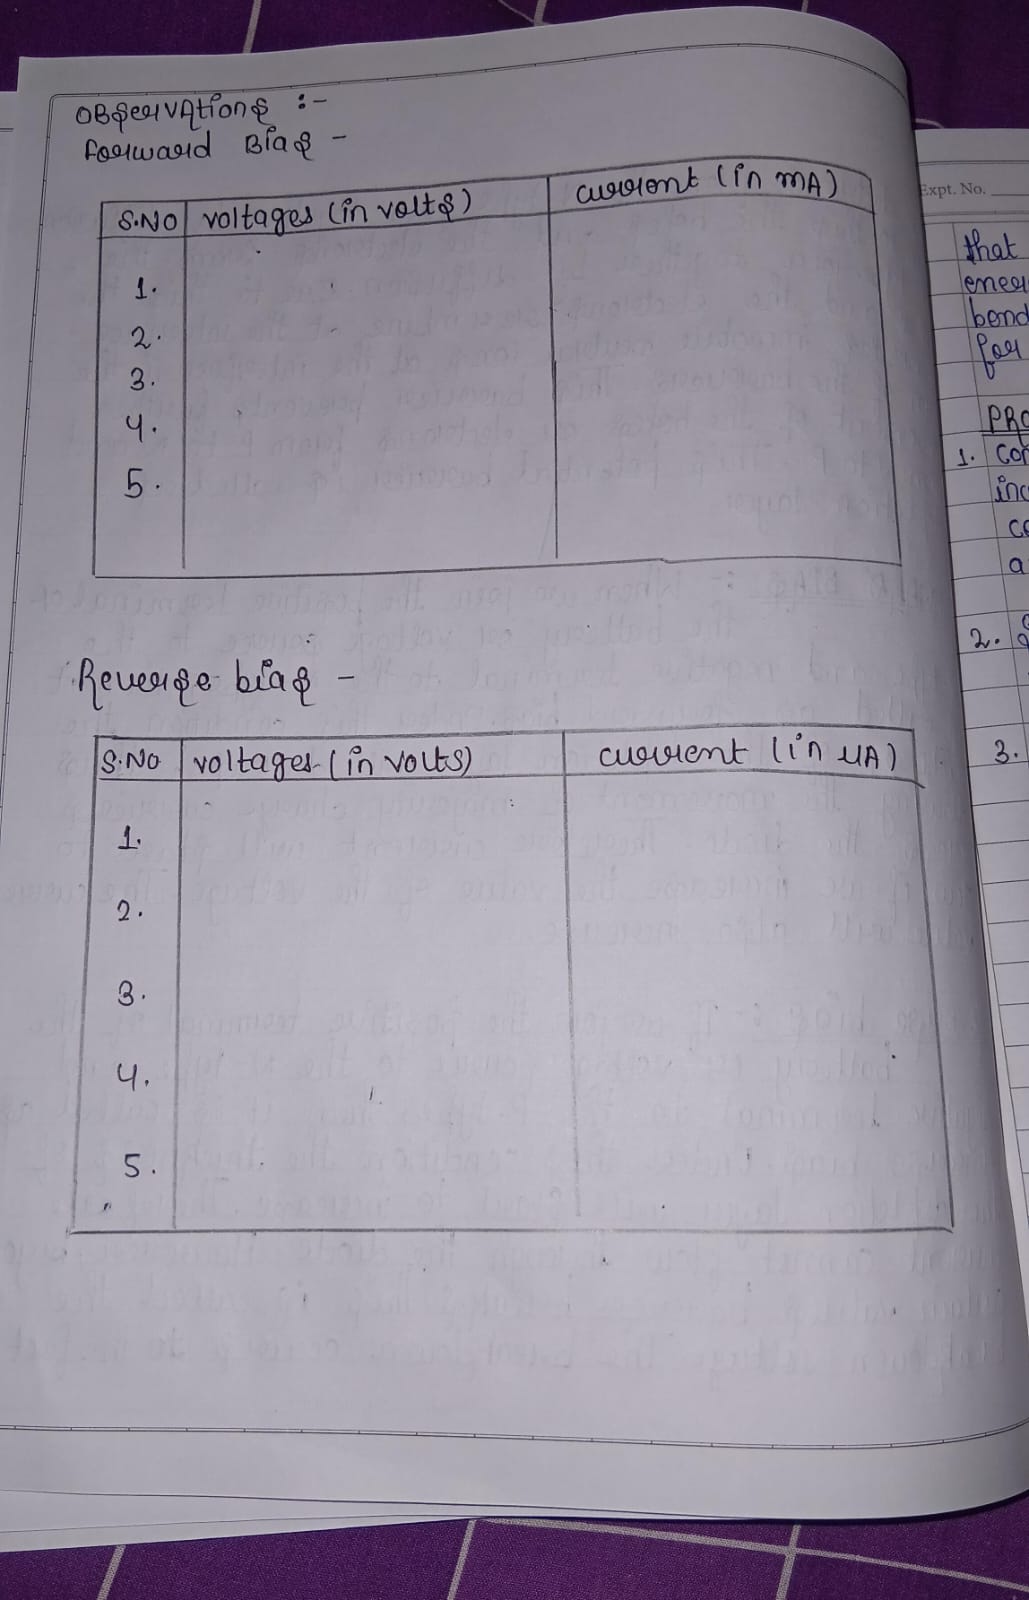 Observations :-
Forward Bias -
S.No voltages (in volts) current (in mA)
1.
2.
3.
4.
5.
Reverse bias -
S.No voltages (in volts) current (in μA)
1.
2.
3.
4.
5.
Expt. No.
that
bond
for
1.
2.
3.